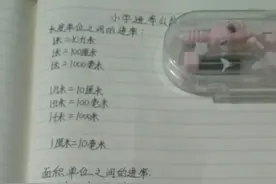 小学进率公
长度单位之间的进率:
1米=10分米
1米=100厘米
1米=1000毫米
1分米=10厘米
1分米=100毫米
1千米=1000米
1厘米=10毫米
面积单位之间的进率: